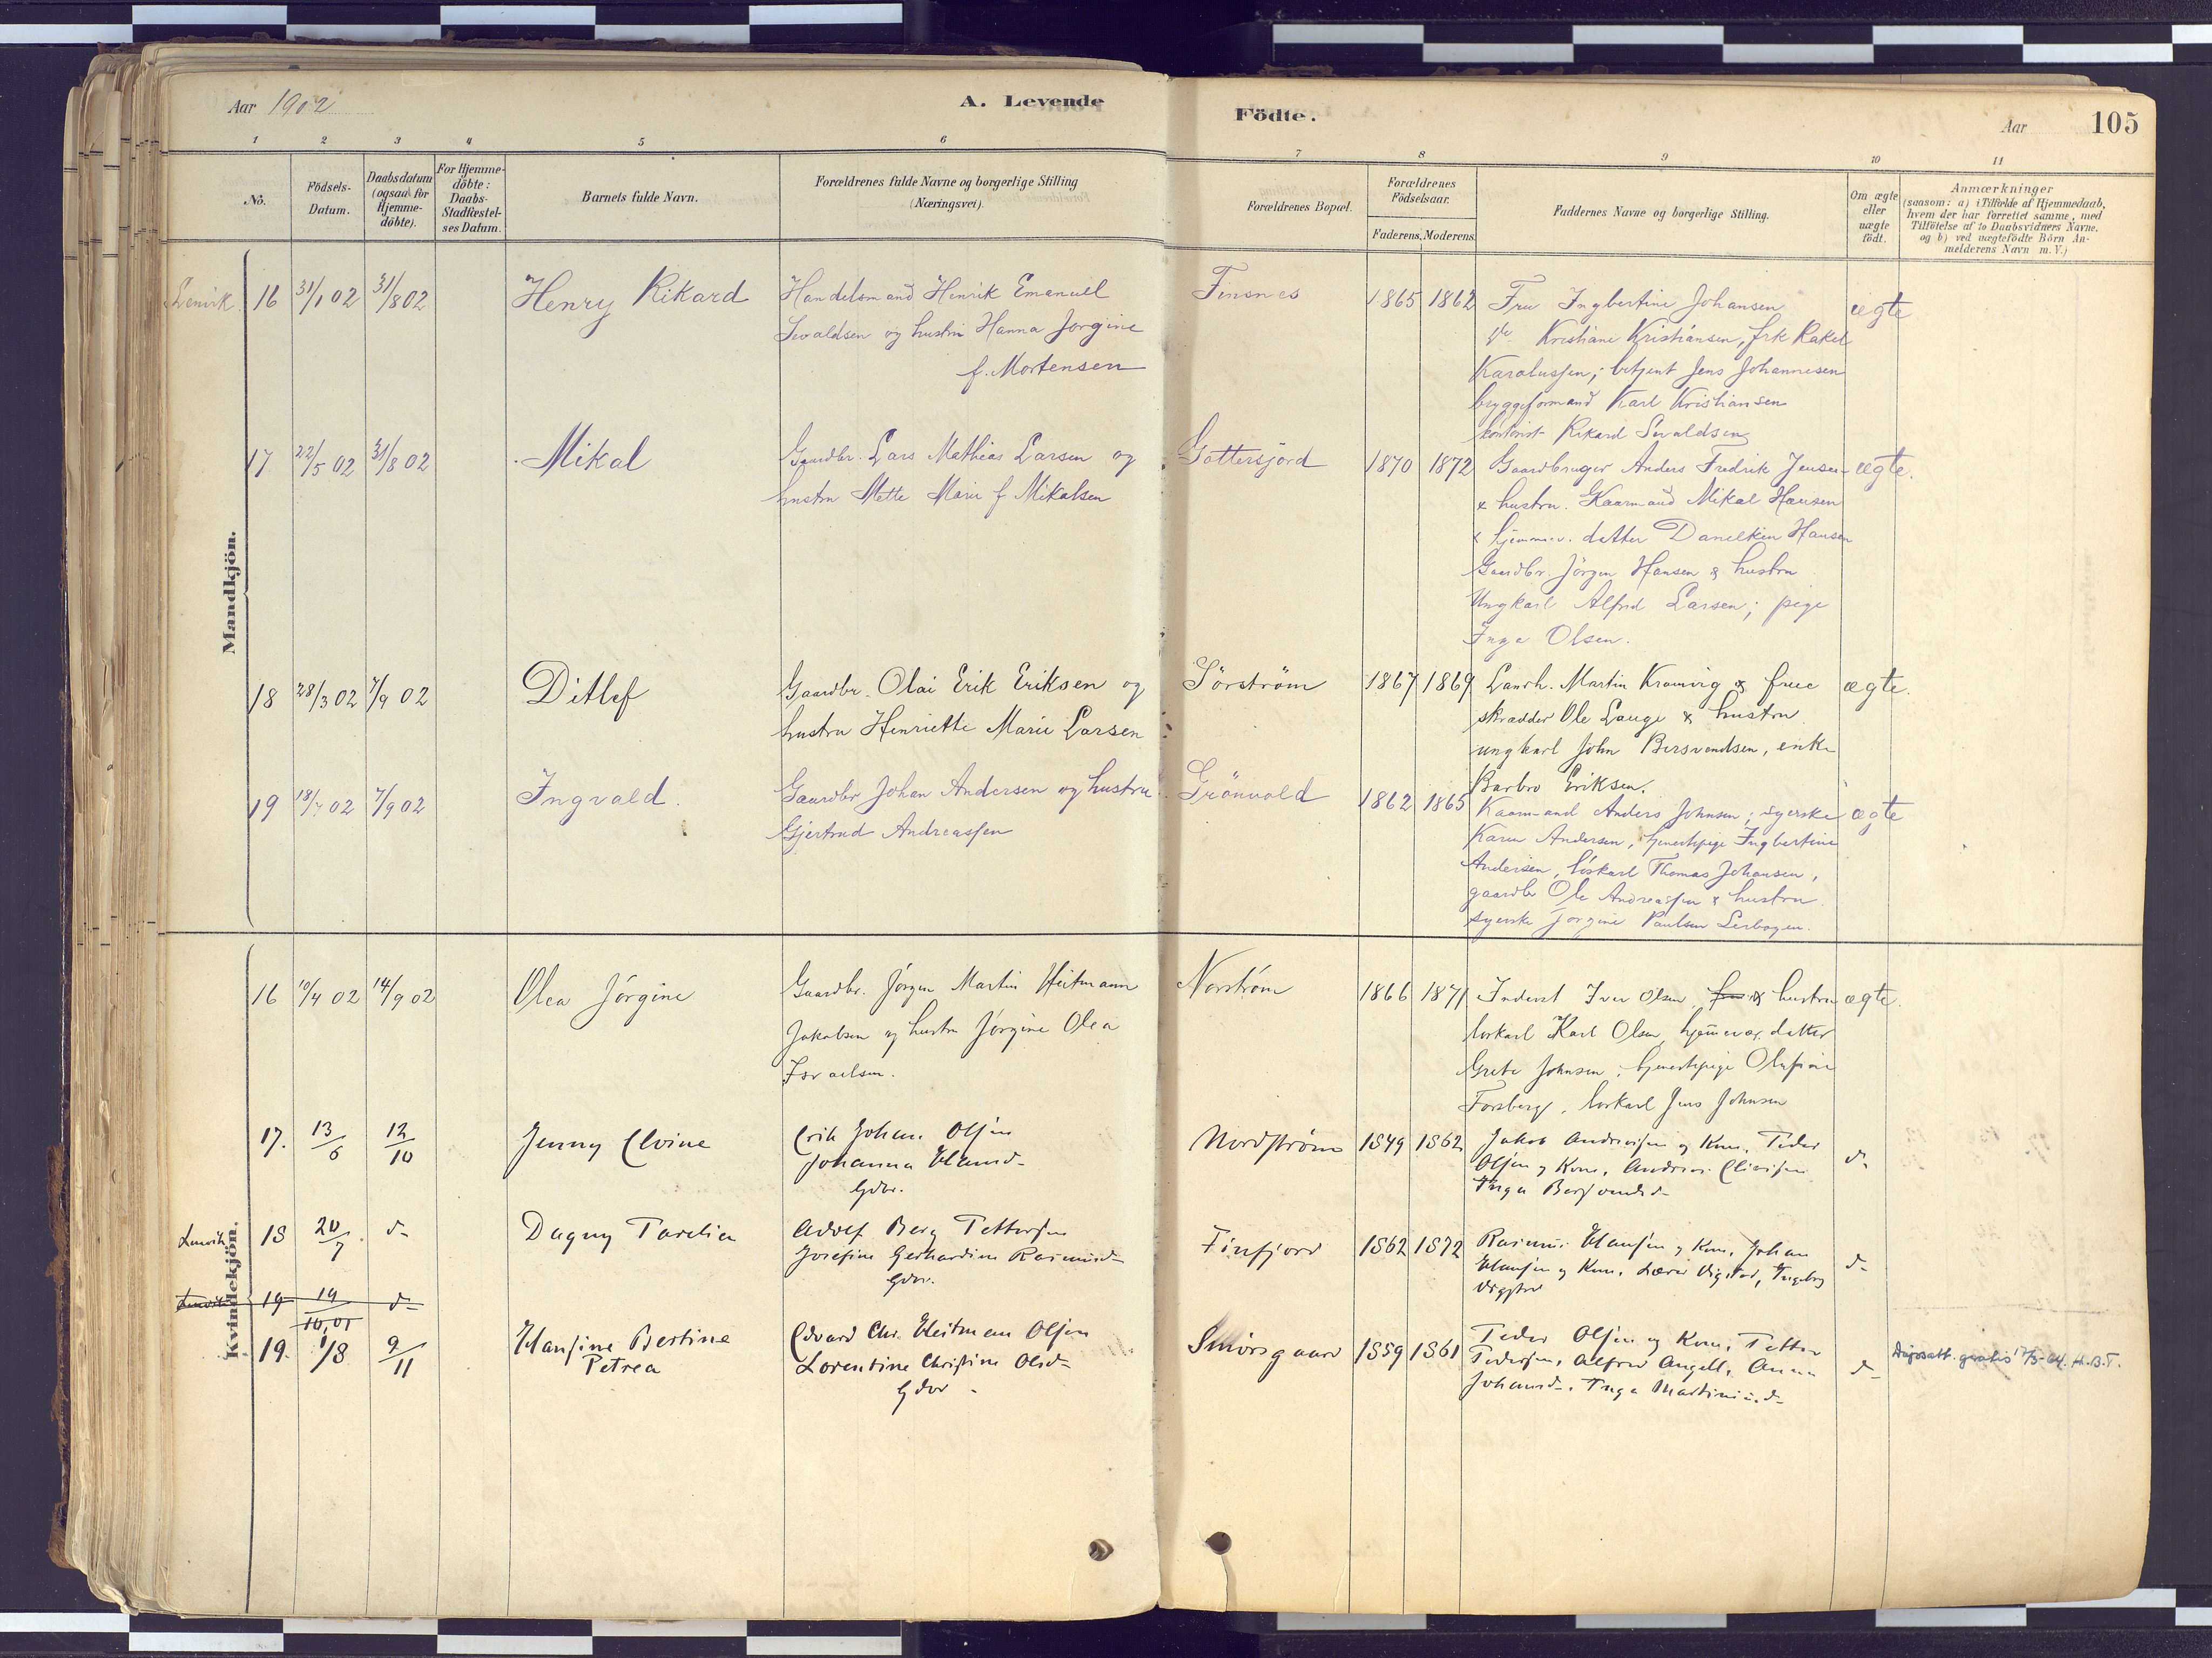 Aar 1902
A. Levende
Födte.
Aar
105
1 2 3 4 5 6 7 8 9 10 11
No.
Födsels-
Datum.
Daabsdatum
(ogsaa for
Hjemme-
döbte).
For Hjemme-
döbte:
Daabs-
Stadfæstel-
ses Datum.
Barnets fulde Navn.
Forældrenes fulde Navne og borgerlige Stilling
(Næringsvei).
Forældrenes Bopæl.
Forældrenes
Födselsaar.
Faderens. Moderens.
Faddernes Navne og borgerlige Stilling.
Om ægte
eller
uægte
födt.
Anmærkninger
(saasom: a) i Tilfælde af Hjemmedaab,
hvem der har forrettet samme, med
Tilföielse af to Daabsvidners Navne,
og b) ved uægtefödte Börn An-
melderens Navn m. V.)
Mandkjön.
Lenvik 16 31/1 02 31/8 02
Henry Rikard
Handelsmand Henrik Emanuel
Sivaldsen og hustru Hanna Jørgine
f. Mortensen
Finsnes
1865 1862
Fru Ingbertine Johansen
do Kristiane Kristiansen, frk Rakel
Karolussen; betjent Jens Johannesen
bryggeformand Karl Kristiansen
kontorist Rikard Sivaldsen
ægte
17 22/5 02 31/8 02
Mikal
Gaardbr. Lars Mathias Larsen og
hustru Mette Marie f Mikalsen
Gottersjord
1870 1872
Gaardbruger Anders Fredrik Jensen
& hustru. Kaarmand Mikal Hansen
& hjemmev. datter Danelkien Hansen
Gaardbr. Jörgen Hansen & hustru
Ungkarl Alfred Larsen; pige
Inga Olsen.
ægte.
18 28/3 02 7/9 02
Ditlef
Gaardbr. Olai Erik Eriksen og
hustru Henriette Marie Larsen
Sörström
1867 1869
Landh. Martin Kramvig & frue
skrædder Ole Lauge & hustru
ungkarl John Bersvendsen, enke
Barbro Eriksen.
ægte.
19 18/7 02 7/9 02
Ingvald.
Gaardbr Johan Andersen og hustru
Gjertrud Andreassen
Grönvold
1862 1865
Kaarmand Anders Johnsen; syerske
Karen Andersen, tjenestepige Ingbertine
Andersen, löskarl Thomas Johansen,
gaardbr Ole Andreassen & hustru.
syerske Jørgine Paulsen Leirbogen.
ægte
Kvindekjön.
16 10/4 02 14/9 02
Olea Jörgine
Gaardbr. Jörgen Martin Heitmann
Jakobsen og hustru Jörgine Olea
Israelsen.
Norström
1866 1871
Inderst Iver Olsen, & hustru
löskarl Karl Olsen, hjemmev. datter
Grete Johnsen, tjenestepige Olufine
Forsberg, löskarl Jens Johnsen
ægte.
17. 13/6 12/10
Jenny Elvine
Erik Johan Olsen
Johanna Hansd-
Gdbr.
Nordström
1849 1862
Jakob Andreasen og Kone, Peder
Olsen og Kone, Andreas Eliasen
Inga Bersvendsd-
d-
Lenvik 18 20/7 d-
Dagny Tarelia
Adolf Berg Pettersen
Josefine Gerhardine Rasmusd-
Gdbr.
Finfjord
1862 1872
Rasmus Hansen og Kone, Johan
Hansen og Kone, Lærer Vigstad, Ingeborg
Vigstad
d-
Lenvik 19 19/10,01 d-
19. 1/8 9/11
Hansine Bertine
Petrea
Edvard Chr. Heitmann Olsen
Lorentine Christine Olsd-
Gdbr-
Smörsgaard
1859 1861
Peder Olsen og Kone, Petter
Pedersen, Alfred Angell, Anna
Johansd-, Inga Martinusd-
d-
Daabsatt. gratis 17/3-04. H.B.T.